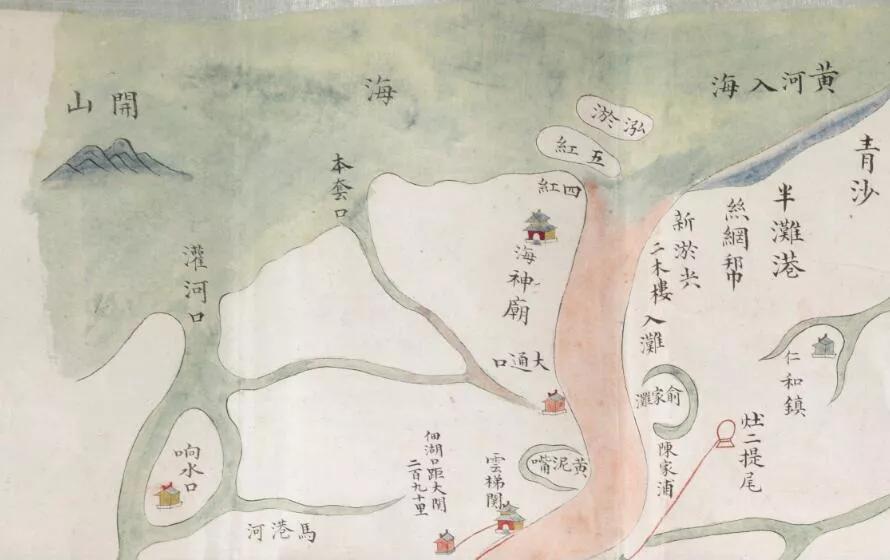 黃河入海
海
開山
泓淤
五紅
四紅
青沙
半灘港
絲網
新淤尖
二木樓
入灘
本套口
灌河口
海神廟
大通口
仁和鎮
俞家灘
陳家浦
二提尾
黃泥嘴
雲梯関
佃湖口距大閘
二百九十里
响水口
馬港河